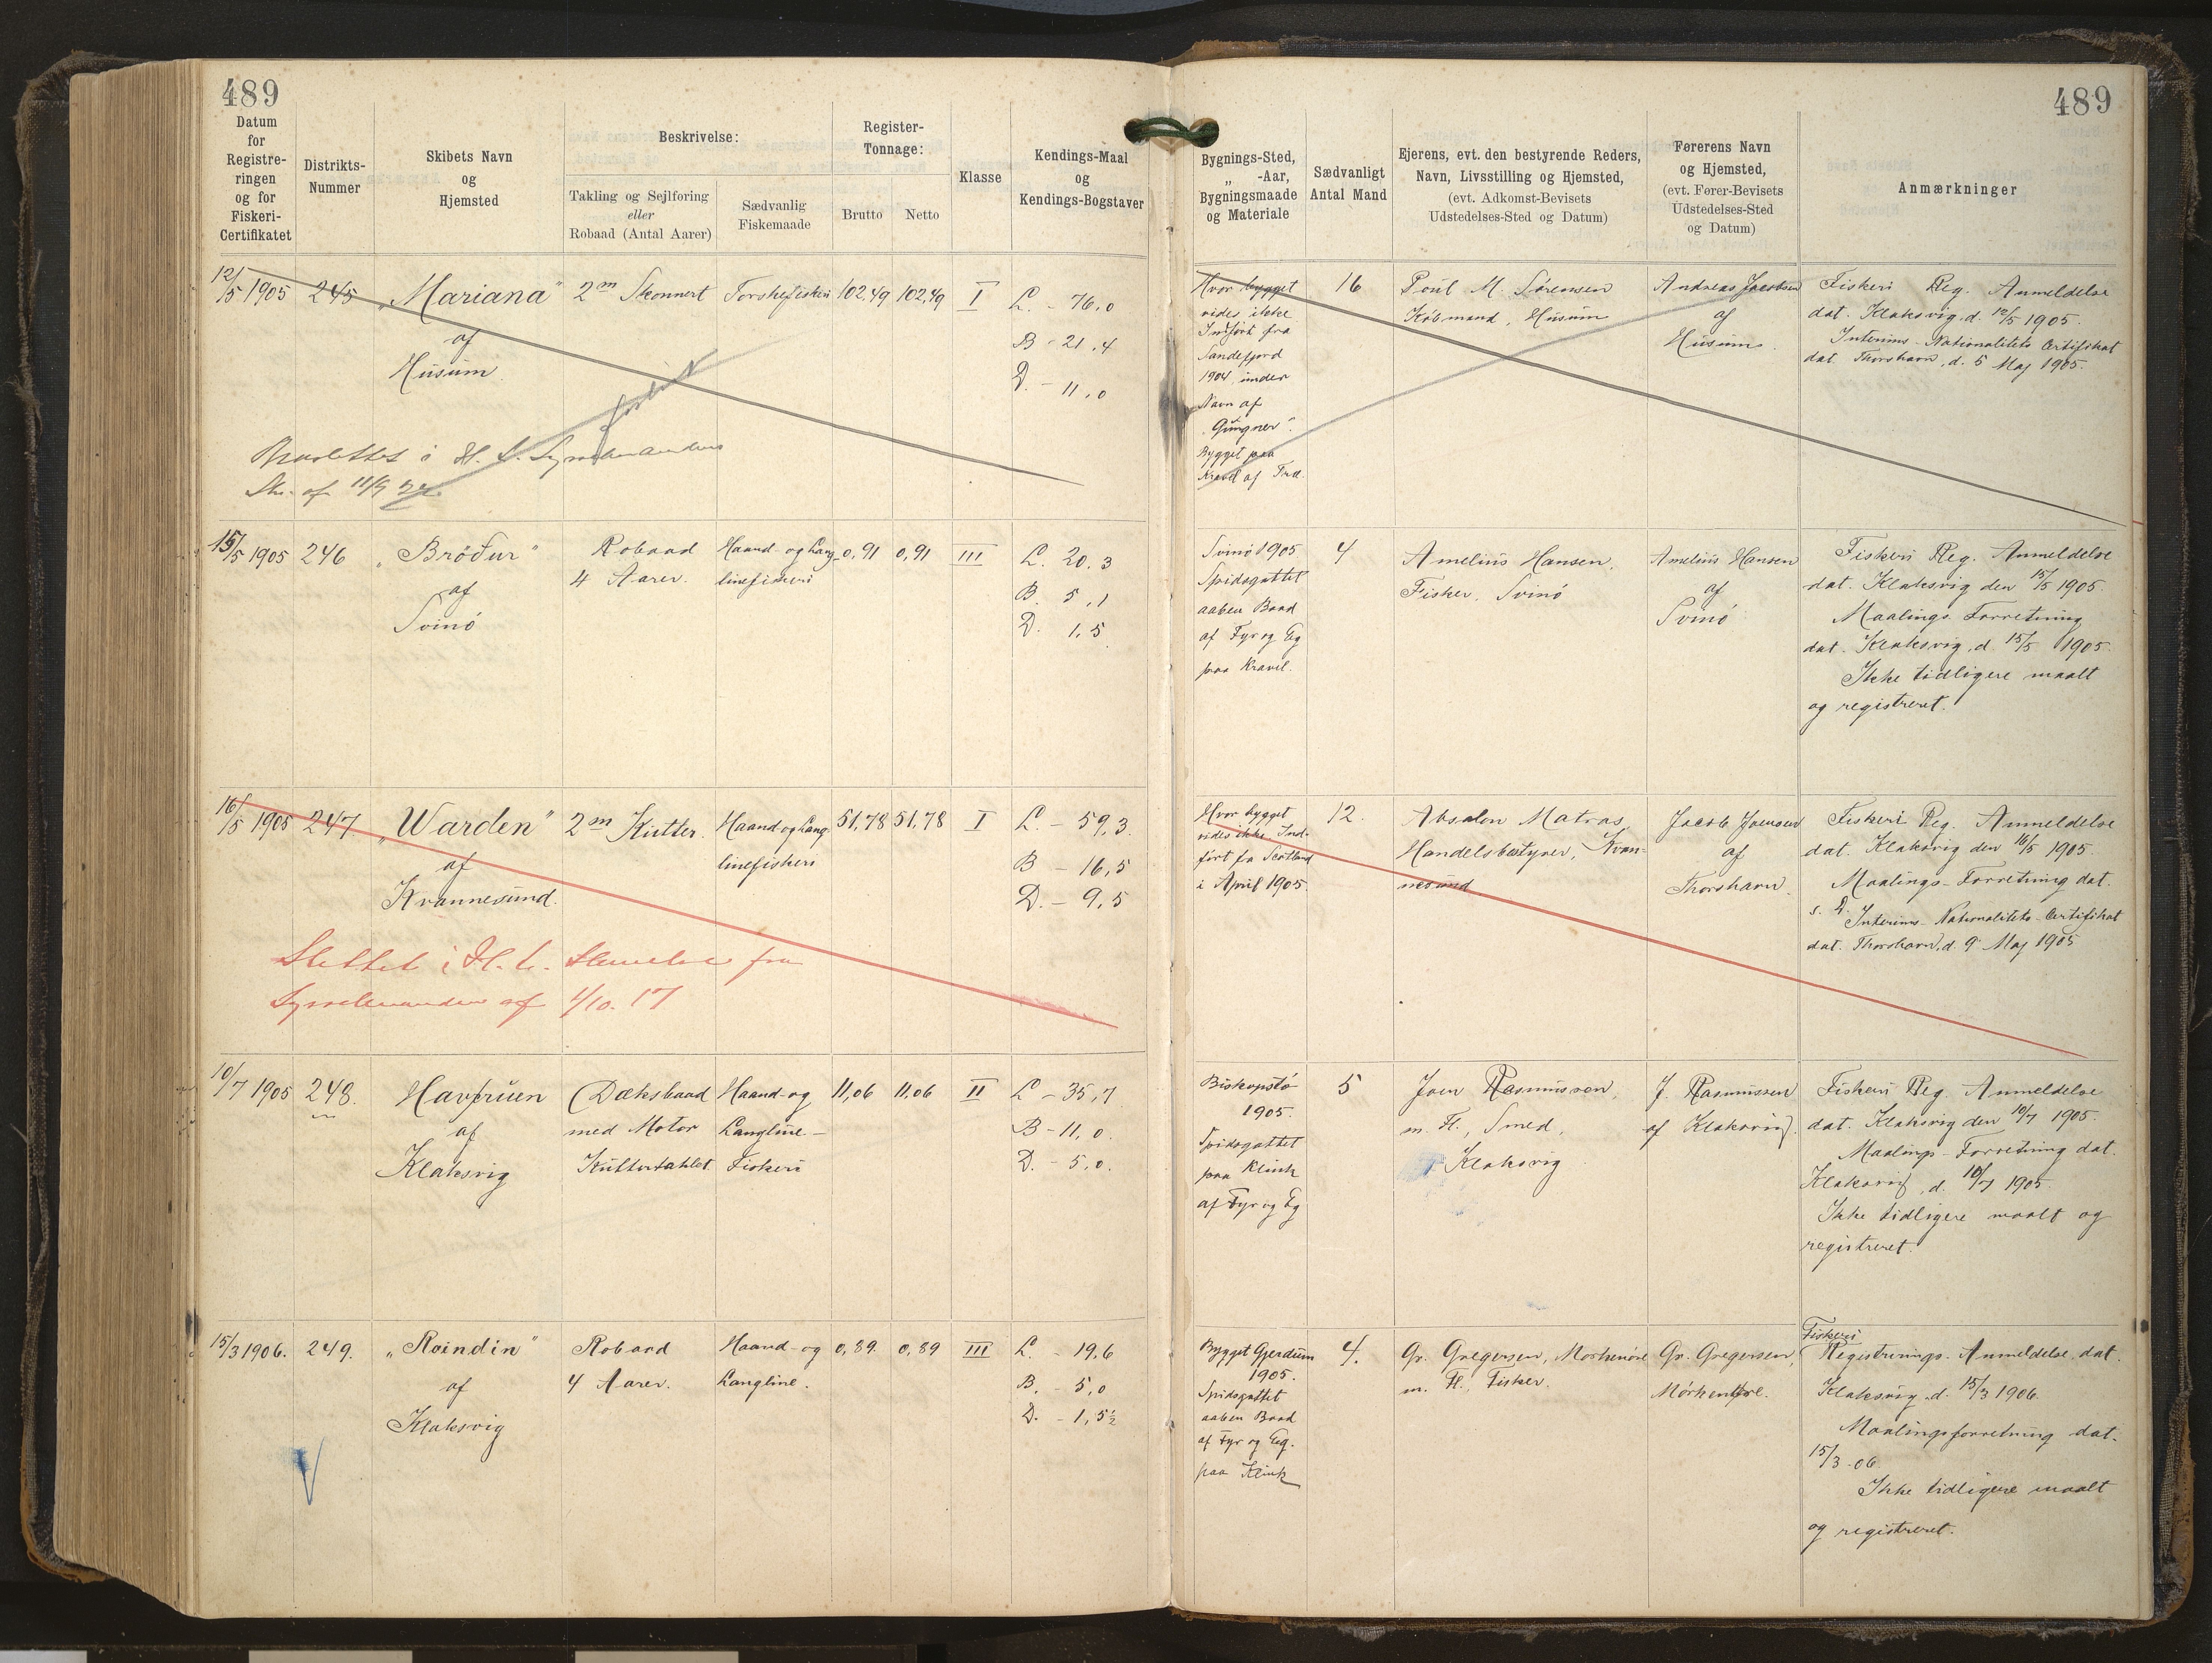 489
489
Datum
for
Registre-
ringen
og for
Fiskeri-
Certifikatet
Distrikts-
Nummer
Skibets Navn
og
Hjemsted
Beskrivelse:
Takling og Sejlføring
eller
Robaad (Antal Aarer)
Sædvanlig
Fiskemaade
Register-
Tonnage:
Brutto
Netto
Klasse
Kendings-Maal
og
Kendings-Bogstaver
Bygnings-Sted,
„ -Aar,
Bygningsmaade
og Materiale
Sædvanligt
Antal Mand
Ejerens, evt. den bestyrende Reders,
Navn, Livsstilling og Hjemsted,
(evt. Adkomst-Bevisets
Udstedelses-Sted og Datum)
Førerens Navn
og Hjemsted,
(evt. Fører-Bevisets
Udstedelses-Sted
og Datum)
Anmærkninger
12/5 1905
245
„Mariana"
af
Husum
2m Skonnert
Torskefiskeri
102,49
102,49
I
L. - 76,0
B - 21,4
D. - 11,0
forlist
i H. t. Sysselmandens
Skr. af 11/9
Hvor bygget
vides ikke
Indført fra
Sandefjord
1904 under
Navn af
„Gungner".
Bygget paa
Kravel af Træ.
16
Poul M. Sørensen
Købmand, Husum
Andreas Jacobsen
af
Husum.
Fiskeri Reg. Anmeldelse
dat. Klaksvig, d. 12/5 1905.
Interims-Nationalitets Certifikat
dat. Thorshavn, d. 5 Maj 1905.
15/5 1905
246
„Bróður"
af
Svinö
Robaad
4 Aarer.
Haand- og Lang-
linefiskeri
0,91
0,91
III
L. 20.3
B. 5,1
D. 1,5
Svinö 1905
Spidsgattet
aaben Baad
af Fyr og Eg
paa Kravel.
4
Amelius Hansen,
Fisker, Svinö
Amelius Hansen
af
Svinö
Fiskeri Reg. Anmeldelse
dat. Klaksvig den 15/5 1905.
Maalings Forretning
dat. Klaksvig, d. 15/5 1905.
Ikke tidligere maalt
og registreret.
16/5 1905
247.
„Warden"
af
Kvannesund.
2m Kutter.
Haand og Lang-
linefiskeri
51,78
51,78
I
L - 59,3.
B - 16,5
D. - 9,5
Slettet i H. t. Skrivelse fra
Sysselmanden af 1/10. 17
Hvor bygget
vides ikke Ind-
ført fra Scotland
i April 1905.
12.
Absalon Matras,
Handelsbestyrer, Kvan-
nesund
Jacob Joensen
af
Thorshavn.
Fiskeri Reg. Anmeldelse
dat. Klaksvig den 16/5 1905.
Maalings-Forretning dat.
s. D. Interims-Nationalitets-Certifikat
dat. Thorshavn, d. 9 Maj 1905
10/7 1905
248.
Havfruen
af
Klaksvig
Dæksbaad
med Motor
Kuttertaklet
Haand- og
Langline-
Fiskeri
11,06
11,06
II
L - 35,7
B - 11,0.
D. - 5,0.
Biskopstö
1905.
Spidsgattet
paa Klink
af Fyr og Eg
5
Joen Rasmussen,
m. Fl., Smed,
Klaksvig
J. Rasmussen
af Klaksvig.
Fiskeri Reg. Anmeldelse
dat. Klaksvig den 10/7 1905.
Maalings-Forretning dat.
Klaksvig, d. 10/7 1905.
Ikke tidligere maalt og
registreret.
15/3 1906.
249.
„Roindin"
af
Klaksvig
Robaad
4 Aarer.
Haand- og
Langline.
0,89.
0,89
III
L. - 19,6
B. - 5,0
D. - 1,5½
Bygget Gjerdum
1905.
Spidsgattet
aaben Baad
af Fyr og Eg.
paa Klink
4.
Gr. Gregersen, Morkenöre
m. Fl., Fisker.
Gr. Gregersen,
Mórkenöre.
Fiskeri
Registrerings-Anmeldelse dat.
Klaksvig, d. 15/3 1906.
Maalingsforretning dat.
15/3 - 06
Ikke tidligere maalt
og registreret.